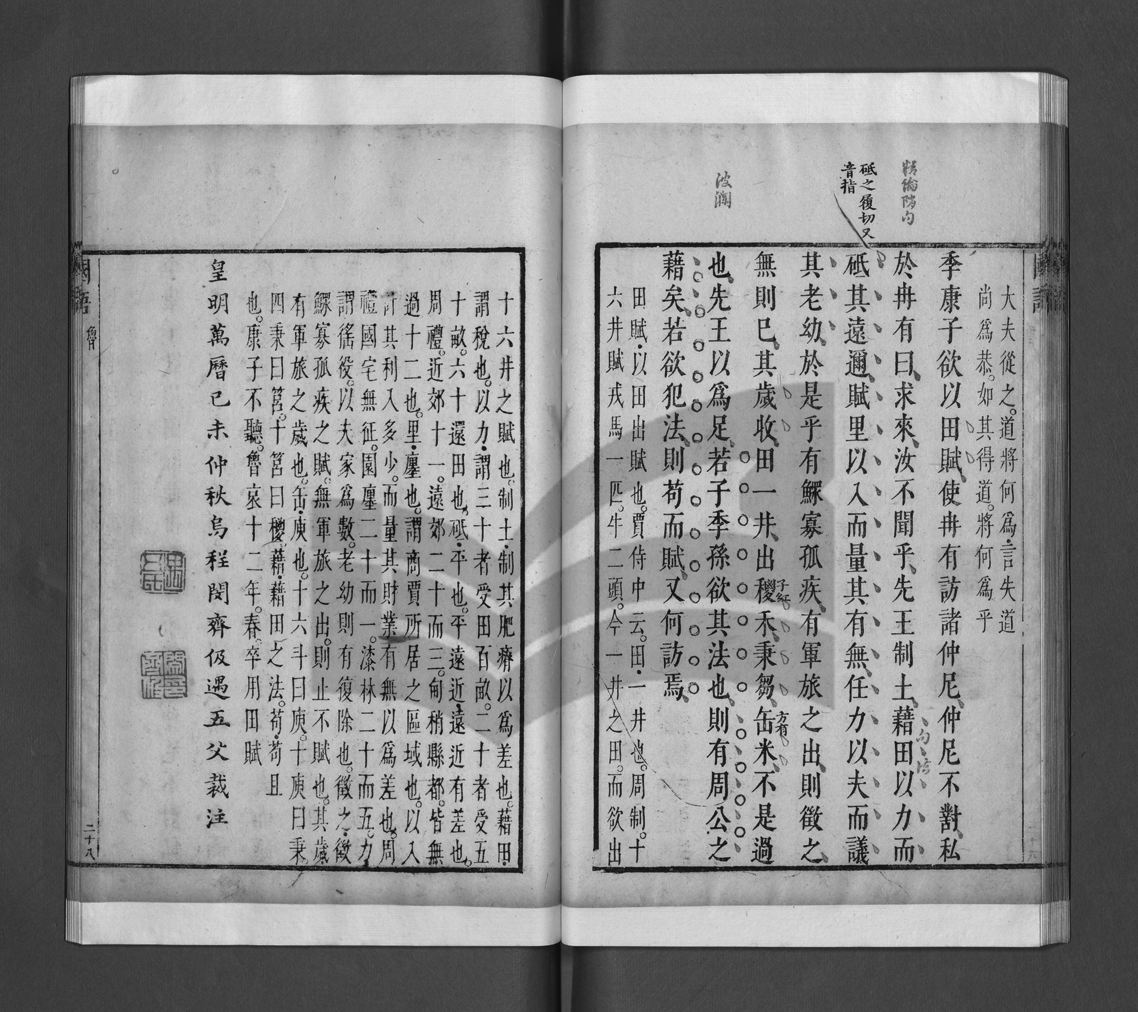 精鍊陗句
砥之履切又
音指
波瀾
國語
大夫從之。道將何爲。言失道
尚爲恭。如其得道。將何爲乎
季康子欲以田賦、使冉有訪諸仲尼、仲尼不對、私
於冉有曰、求來、汝不聞乎、先王制土、藉田以力、而
砥其遠邇、賦里以入、而量其有無、任力以夫、而議
其老幼、於是乎有鰥寡孤疾、有軍旅之出、則徵之、
無則已、其歲收、田一井、出稯禾、秉芻、缶米、不是過
也、先王以爲足、若子季孫欲其法也、則有周公之
藉矣、若欲犯法、則苟而賦、又何訪焉、
子紅
方有
田賦。以田出賦也。賈侍中云。田。一井也。周制。十
六井賦戎馬一匹。牛二頭。今一井之田。而欲出
十六井之賦也。制土。制其肥瘠以爲差也。藉田。
謂稅也。以力。謂三十者受田百畝。二十者受五
十畝。六十還田也。砥。平也。平遠近。遠近有差也。
周禮。近郊十一。遠郊二十而三。甸稍縣都。皆無
過十二也。里。廛也。謂商賈所居之區域也。以入
計其利入多少。而量其財業有無以爲差也。周
禮國宅無征。園廛二十而一。漆林二十而五。力。
謂徭役。以夫家爲數。老幼則有復除也。徵之。徵
鰥寡孤疾之賦。無軍旅之出。則止不賦也。其歲
有軍旅之歲也。缶。庾也。十六斗曰庾。十庾曰秉
四秉曰筥。十筥曰稯。藉。藉田之法。苟。苟且
也。康子不聽。魯哀十二年。春。卒用田賦
皇明萬曆己未仲秋烏程閔齊伋遇五父裁注
國語
魯
二十八